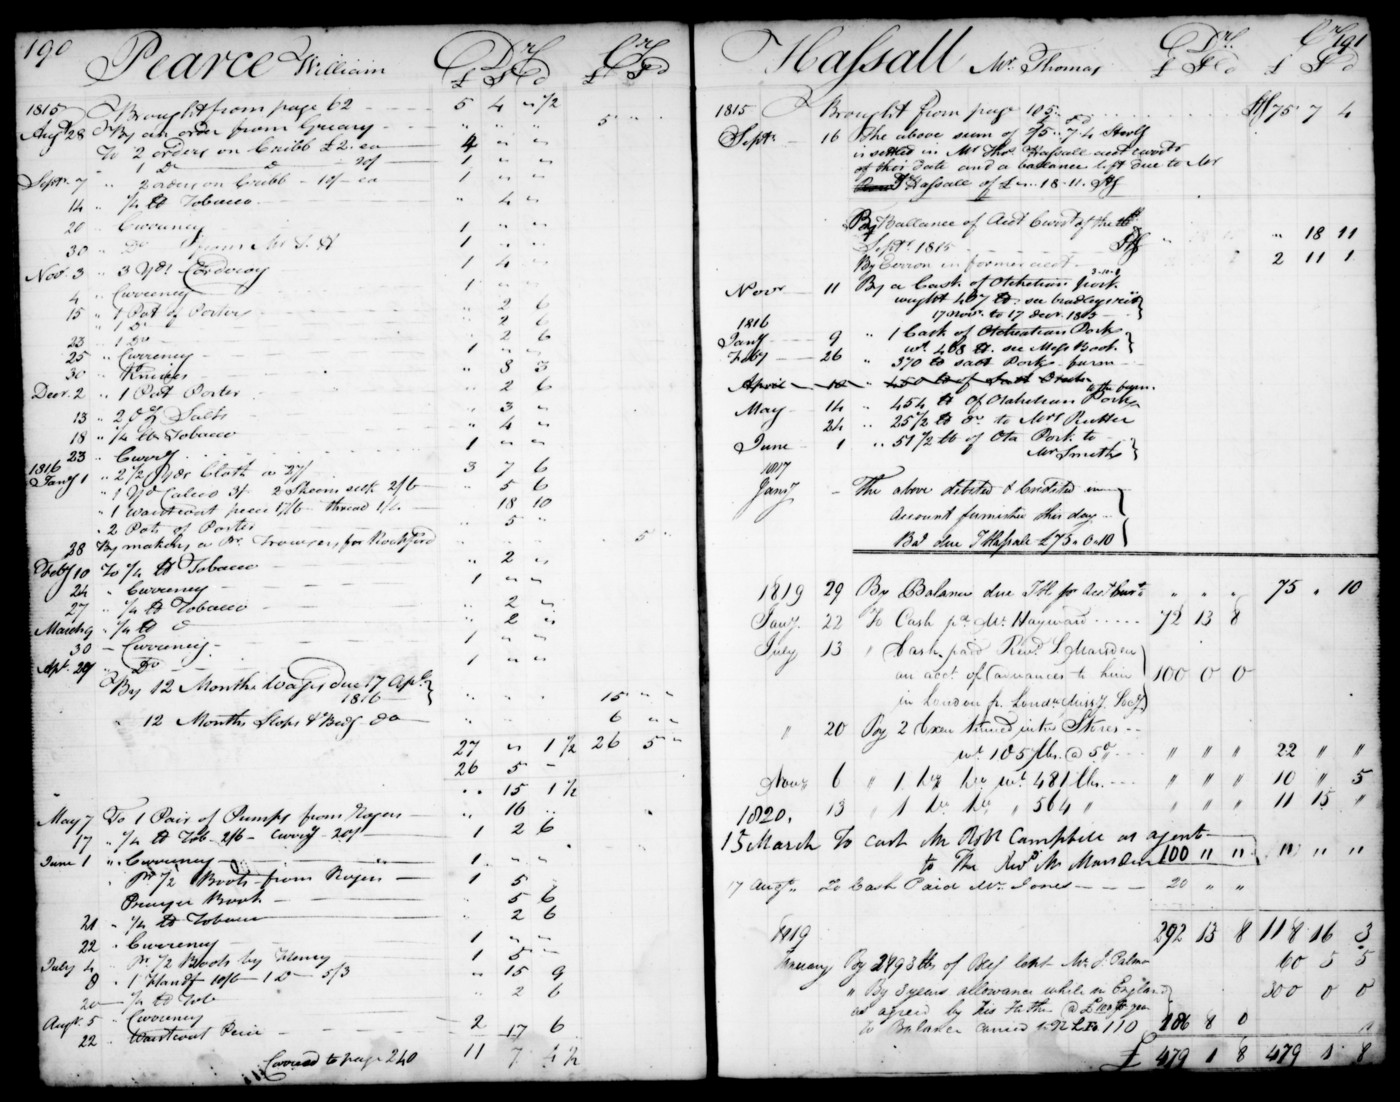 190 Pearce William Dr Cr
£ S d £ S d
1815 Brought from page 62 5 4 " 1/2
Augt 28 By an order from Greasy " " " 5 " "
To 2 orders on Cribb £2 ea 4 " "
" 1 Do 20/ 1 " "
Septr 7 " 2 orders on Cribb - 10/- ea 1 " "
14 " 1/4 lb Tobacco " 4 "
20 Currency 1 " "
30 " Do from Mr T. H 1 " "
Novr 3 " 3 Yds Corderoy 1 4 "
4 " Currency 1 " "
15 " 1 Pot of Porter " 2 6
" 1 Do " 2 6
23 " 1 Do " 2 6
25 " Currency 1 " "
30 " Knives " 3 3
Decr 2 " 1 Pot Porter " 2 6
13 " 2 oz Salts " 3 "
18 " 1/4 lb Tobacco " 4 "
23 " Curry 1 " "
1816
Jany 1 " 2 1/2 Yds Cloth a 27/ 3 7 6
" 1 Yd Calico 3/. 2 Skeins silk 2/6 " 5 6
" 1 Waistcoat piece 17/6 - thread 1/4 18 10
" 2 Pots of Porter " 5 "
28 By making a Pr Trowsers for Rockford 5 "
Feby 10 To 1/4 lb Tobacco " 2 "
24 " Currency 1 " "
27 " 1/4 lb Tobacco " 2 "
March 9 " 1/4 lb Do " 2 "
30 - Currency - 1 " "
Apl. 29 " Do 1 " "
By 12 Months Wages due 17 Apl.
1816 15 " "
" 12 Months Slops & Bedg do 6 " "
27 " 1 1/2 26 5 "
26 5 -
" " 15 1 1/2
May 7 To 1 Pair of Pumps from Rogers " 16 "
17 " 1/4 lb Tob. 2/6 - Curry 20/ 1 2 6
June 1 " Currency 1 " "
" Pr 1/2 Boots from Rogers 1 5 "
Prayer Book " 5 6
21 " 1/4 lb Tobacco " 2 6
22 " Currency 1 " "
July 4 " Pr 1/2 Boots by Henry 1 5 "
8 " 1 Handf 10/6 - 1 Do - 5/3 " 15 9
20 " 1/4 lb Tob " 2 6
Augt. 5 " Currency 2
22 " Waistcoat Piece 17 6
Carried to page 240 11 7 4 1/2
Hassall Mr Thomas Dr Cr 191
£ S d £ S d
1815 Brought from page 105 75 7 4
Septr 16 The above sum of £75..7.4 Sterlg
is settled in Mr Thos Hassall acct curnt
of this date and a ballance left due to Mr
Hassall of £ " .. 18 .. 11. Stg
By Ballance of Acct Curnt of the 16
Septr 1815 Stg " 18 11
By Error in former acct 2 11 1
Novr 11 By a Cask of Otaheitan Pork
weight 407 lb
17 Novr. to 17 Decr. 1815
1816
Jany 9 " 1 Cask of Otaheitan Pork
wt. 408 lb. see Mess Book
Feby 26 " 370 lb salt Pork
April
May 14 " 454 lb of Otaheitan Pork
24 " 25 1/2 lb Do to Mrs Rutter
June 1 " 51 1/2 lb of Ota Pork to
Mr Smiths
1817
Jany - The above debited & Credited in
Account furnished this day
Bal due T Hassall £75 " 0 " 10
1819 29 By Balance due T H pr Acct Curt " " " 75 " 10
Jany. 22 To Cash pr Mr Hayward 72 13 8
July 13 " Cash paid Revd. S. Marsden
on acct of advances to him 100 0 0
in London pr London Missy. Socy.
" 20 By 2 Oxen turned into Stores
wt. 105 lbs. @ 5d " " " 22 " "
Novr 6 " 1 do do wt. 481 lbs. " " " 10 " 5
1820. 13 " 1 do do " 564 " 11 15 "
15 March To cash Mr Robt Campbell as agent
to The Revd Mr Marsden 100 " " " " "
17 Augt. To Cash Paid Mr. Jones 20 " "
292 13 8 118 16 3
1819
January By 2493 lbs of Beef Mr. J. Palmer 60 5 5
" By 3 years allowance while in England
as agreed by his Father @ £100 pr year 300 0 0
To Balance carried to 110 186 8 0
£ 479 1 8 479 1 8